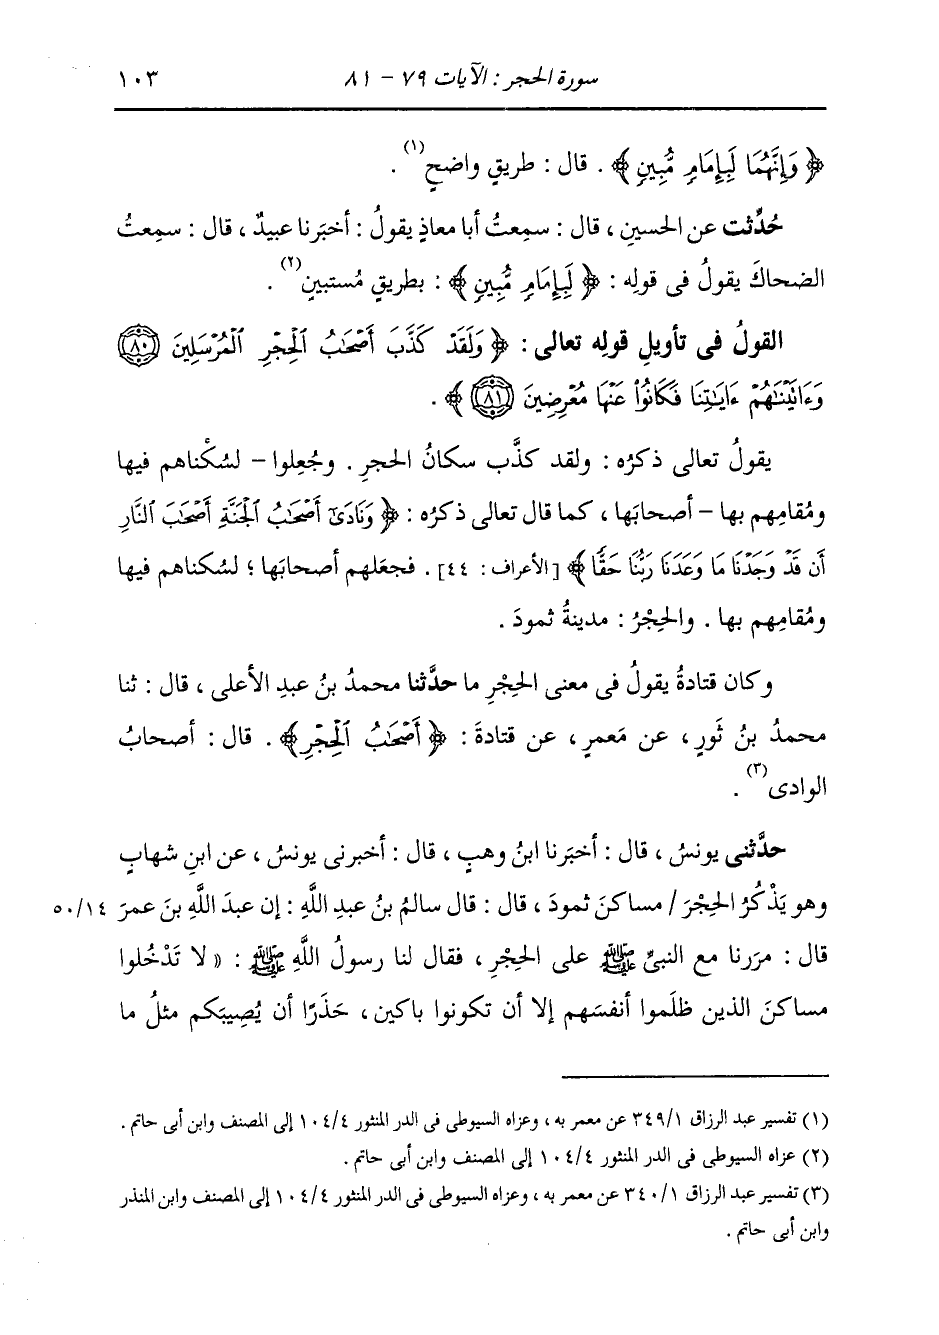 سورة الحجر : الآيات ٧٩ - ٨١
١٠٣
﴿ وَإِنَّهُمَا لَبِإِمَامٍ مُّبِينٍ ﴾ . قال : طريقٍ واضحٍ(١) .
حُدِّثت عن الحسينِ ، قال : سمِعتُ أبا معاذٍ يقولُ : أخبَرنا عبيدٌ ، قال : سمِعتُ
الضحاكَ يقولُ فى قولِه : ﴿ لَبِإِمَامٍ مُّبِينٍ ﴾ : بطريقٍ مُستبينٍ(٢) .
القولُ فى تأويلِ قولِه تعالى : ﴿ وَلَقَدْ كَذَّبَ أَصْحَٰبُ ٱلْحِجْرِ ٱلْمُرْسَلِينَ ٨٠
وَءَاتَيْنَٰهُمْ ءَايَٰتِنَا فَكَانُوا۟ عَنْهَا مُعْرِضِينَ ٨١ ﴾ .
يقولُ تعالى ذكرُه : ولقد كذَّب سكانُ الحجرِ . وجُعِلوا - لسُكْناهم فيها
ومُقامِهم بها - أصحابَها ، كما قال تعالى ذكرُه : ﴿ وَنَادَىٰٓ أَصْحَٰبُ ٱلْجَنَّةِ أَصْحَٰبَ ٱلنَّارِ
أَن قَدْ وَجَدْنَا مَا وَعَدَنَا رَبُّنَا حَقًّا ﴾ [الأعراف : ٤٤] . فجعَلهم أصحابَها ؛ لسُكناهم فيها
ومُقامِهم بها . والحِجْرُ : مدينةُ ثمودَ .
وكان قتادةُ يقولُ فى معنى الحِجْرِ ما حدَّثنا محمدُ بنُ عبدِ الأعلى ، قال : ثنا
محمدُ بنُ ثَورٍ ، عن مَعمرٍ ، عن قتادةَ : ﴿ أَصْحَٰبُ ٱلْحِجْرِ ﴾ . قال : أصحابُ
الوادى(٣) .
حدَّثنى يونسُ ، قال : أخبَرنا ابنُ وهبٍ ، قال : أخبرنى يونسُ ، عن ابنِ شهابٍ
وهو يَذْكُرُ الحِجْرَ / مساكنَ ثمودَ ، قال : قال سالمُ بنُ عبدِ اللَّهِ : إن عبدَ اللَّهِ بنَ عمرَ ٥٠/١٤
قال : مرَرنا مع النبيِّ ﷺ على الحِجْرِ ، فقال لنا رسولُ اللَّهِ ﷺ : « لا تَدْخُلوا
مساكنَ الذين ظلَموا أنفسَهم إلا أن تكونوا باكين ، حَذَرًا أن يُصِيبَكم مثلُ ما
(١) تفسير عبد الرزاق ٣٤٩/١ عن معمر به ، وعزاه السيوطى فى الدر المنثور ١٠٤/٤ إلى المصنف وابن أبى حاتم .
(٢) عزاه السيوطى فى الدر المنثور ١٠٤/٤ إلى المصنف وابن أبى حاتم .
(٣) تفسير عبد الرزاق ٣٤٠/١ عن معمر به ، وعزاه السيوطى فى الدر المنثور ١٠٤/٤ إلى المصنف وابن المنذر
وابن أبى حاتم .